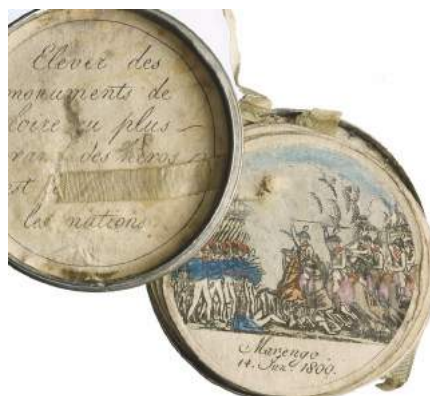 Elever des
monuments de
plus
des héros
les nations.
Marengo.
14. 1800.